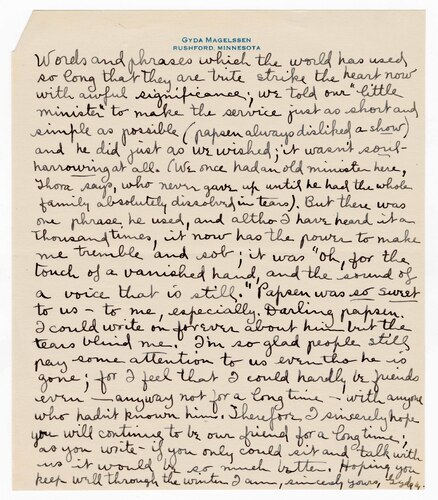 GYDA MAGELSSEN
RUSHFORD, MINNESOTA
Words and phrases which the world has used
so long that they are trite strike the heart now
with awful significance; we told our "little
minister" to make the service just as short and
simple as possible (papsen always disliked a show)
and he did just as we wished; it wasn't soul-
harrowing at all. (We once had an old minister here,
Thora says, who never gave up until he had the whole
family absolutely dissolved in tears). But there was
one phrase he used, and altho I have heard it a
thousand times, it now has the power to make
me tremble and sob; it was "oh, for the
touch of a vanished hand, and the sound of
a voice that is still." Papsen was so sweet
to us - to me, especially. Darling papsen.
I could write on forever about him but the
tears blind me. I'm so glad people still
pay some attention to us even tho he is
gone; for I feel that I could hardly be friends
even - anyway not for a long time - with anyone
who hadn't known him. Therefore I sincerely hope
you will continue to be our friend for a long time;
as you write - if you only could sit and talk with
us it would be so much better. Hoping you
keep well through the winter I am, sincerely yours, Gyda